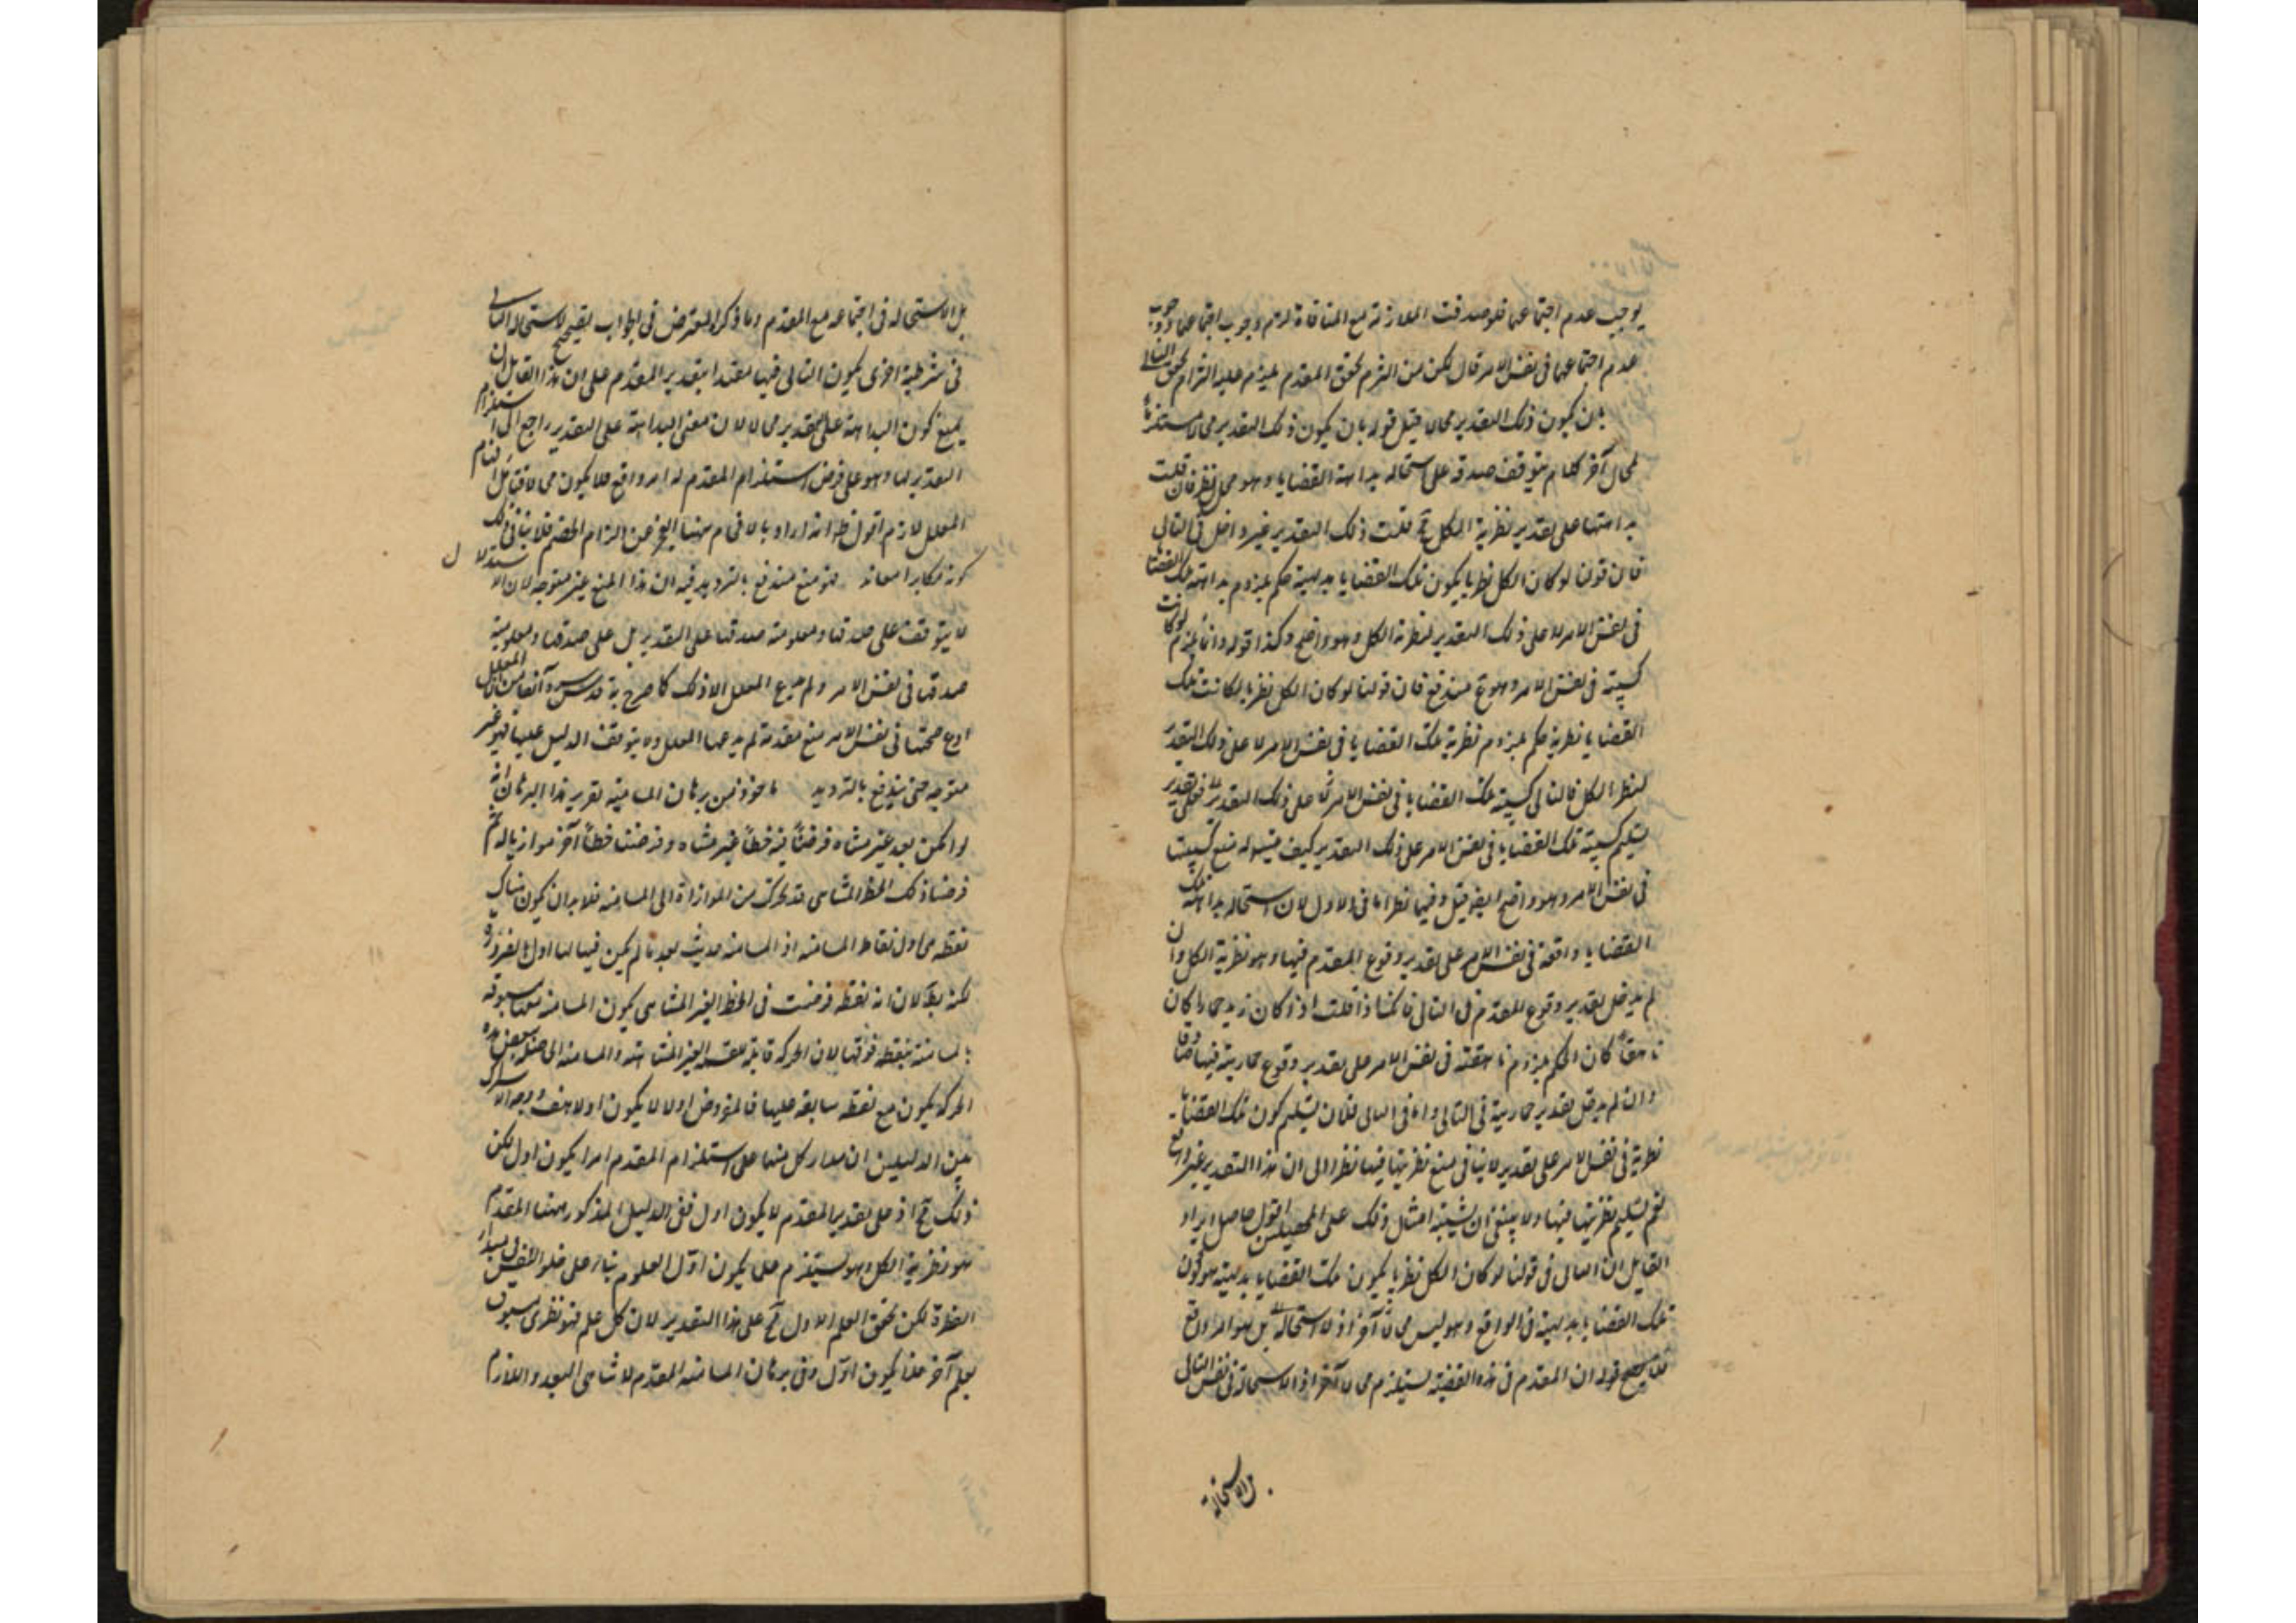 يوجب عدم اجتماعهما فلو صدقت المعاندة مع المنافاة لزم وجوب اجتماعهما ووجوب
عدم اجتماعهما في نفس الامر قال لكن من التزم تحقق المقدم يلزم عليه التزام تحقق التالي
بان يكون ذلك التقدير محالا قيل قوله بان يكون ذلك التقدير محالا مستلزما
لمحال آخر كلام يتوقف صدقه على استحالة بداهة القضايا وهو محل نظر فان قلت
بداهتها على تقدير نظرية الكل مح قلت ذلك التقدير غير داخل في التالي
فان قولنا لو كان الكل نظريا يكون تلك القضايا بديهية حكم بلزوم بداهة تلك القضايا
في نفس الامر لا على ذلك التقدير لنظرية الكل وهو واضح وكذا قوله وانما يلزم لو كانت
كسبية في نفس الامر وهو مم مندفع فان قولنا لو كان الكل نظريا لكانت تلك
القضايا نظرية حكم بلزوم نظرية تلك القضايا في نفس الامر لا على ذلك التقدير
لنظر الكل فالتالي كسبية تلك القضايا في نفس الامر لا على ذلك التقدير فعلى تقدير
تسليم كسبية تلك القضايا في نفس الامر على ذلك التقدير كيف يتيسر له منع كسبيتها
في نفس الامر وهو واضح ايضا قيل وفيهما نظر اما في الاول لان استحالة بداهة تلك
القضايا واقعة في نفس الامر على تقدير وقوع المقدم فيها وهو نظرية الكل وان
لم يدخل تقدير وقوع المقدم في التالي فانك اذا قلت اذا كان زيد حمارا كان
ناهقا كان الحكم بلزوم ناهقته في نفس الامر على تقدير وقوع حماريته فيها صادقا
وان لم يدخل تقدير حماريته في التالي واما في الثاني فلان تسليم كون تلك القضايا
نظرية في نفس الامر على تقدير لا ينافي منع نظريتها فيها نظرا الى ان هذا التقدير غير واقع
نعم تسليم نظريتها فيها ولا ينبغي ان يشتبه امثال ذلك على المحصلين اقول حاصل ايراد
القايل ان التالي في قولنا لو كان الكل نظريا يكون تلك القضايا بديهية هو كون
تلك القضايا بديهية في الواقع وهو ليس محالا آخر اذ لا استحالة بل هو امر واقع
فلا يصح قوله ان المقدم في هذه القضية يستلزم محالا آخر اذ لا استحالة في نفس التالي
بل الاستحالة
بل الاستحالة في اجتماعه مع المقدم وما ذكره المعترض في الجواب تصحيح لاستحالة التالي
في شرطية اخرى يكون التالي فيها مقيدا بتقدير المقدم على ان هذا القايل ان
يمنع كون البداهة على التقدير محالا لان معنى البداهة على التقدير راجع الى استلزام
التقدير لها وهو على فرض استلزام المقدم له امر واقع فلا يكون محالا فتأمل
المعلل لازم اقول نظر انه اراد بالافحام ههنا العجز عن الزام الخصم فلا ينافي ذلك
كونه مكابرا معاندا فهو منع مندفع بالترديد فيه ان هذا المنع غير متوجه لان الاستدلال
لا يتوقف على صدقها ومعلومية صدقها على التقدير بل على صدقها ومعلومية
صدقها في نفس الامر ولم يدع المعلل الا ذلك كما صرح به قدس سره آنفا
صحتها في نفس الامر منع مقدمة لم يدعها المعلل ولا يتوقف الدليل عليها فهو غير
متوجه حتى يندفع بالترديد ماخوذ من برهان المسامتة تقرير هذا البرهان انه
لو امكن بعد غير متناه فرضنا فيه خطا غير متناه وفرضنا خطا آخر موازيا له ثم
فرضنا ذلك الخط المتناهي قد تحرك من الموازاة الى المسامتة فلا بد ان يكون هناك
نقطة هي اول نقاط المسامتة اذ المسامتة حدثت بعد ما لم يكن فيها لها اول بالضرورة
لكنه بط لان اية نقطة فرضت في الخط الغير المتناهي يكون المسامتة معها مسبوقة
بالمسامتة بنقطة فوقها لان الحركة قابلة للقسمة الغير المتناهية والمسامتة الى بعض هذه
الحركة يكون مع نقطة سابقة عليها فالمفروض اولا لا يكون اولا هف ووجه الاشتراك
بين الدليلين ان مدار كل منهما على استلزام المقدم امرا يكون اول لكن
ذلك مح اذ على تقدير المقدم لا يكون اول ففي الدليل المذكور ههنا المقدم
هو نظرية الكل وهو يستلزم علما يكون اول العلوم بناء على خلو النفس في مبدأ
الفطرة لكن تحقق العلم الاول مح على هذا التقدير لان كل علم فهو نظري مسبوق
بعلم آخر فلا يكون اول وفي برهان المسامتة المقدم لا تناهي البعد واللازم